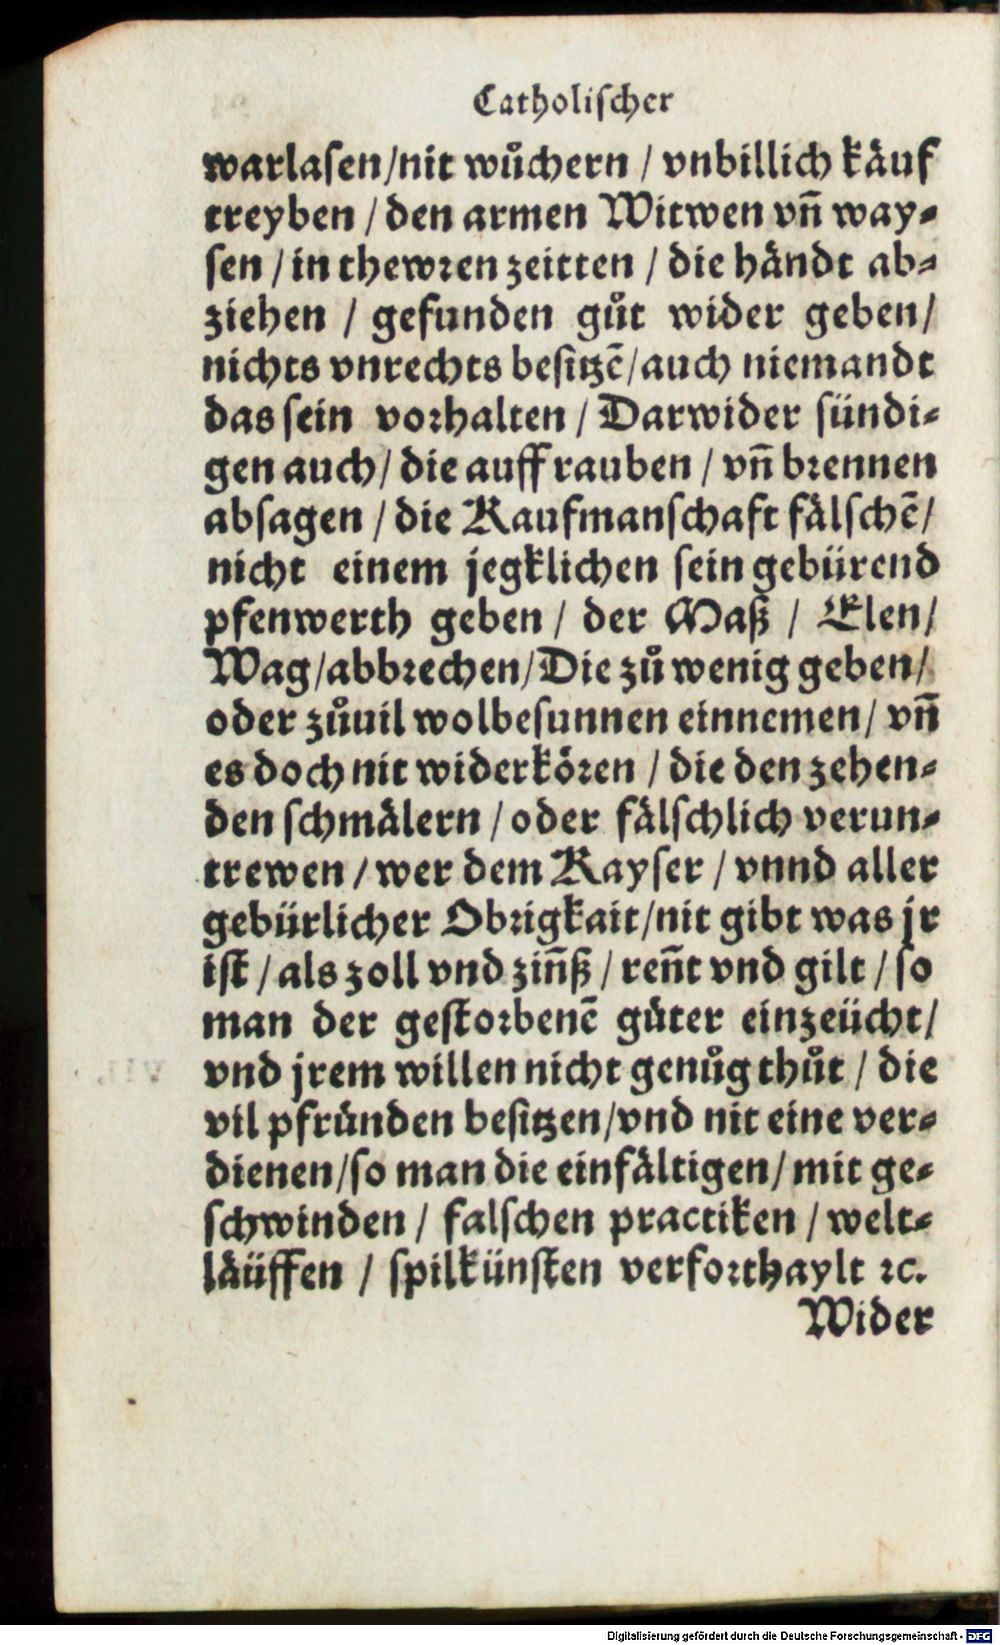 Catholiſcher
warlaſen/nit wuͦchern / vnbillich kaͤuf
treyben / den armen Witwen vn̄ way⸗
ſen / in thewꝛen zeitten / die haͤndt ab⸗
ziehen / gefunden guͦt wider geben/
nichts vnrechts beſitzē/auch niemandt
das ſein voꝛhalten / Darwider ſündi⸗
gen auch/ die auff rauben / vn̄ bꝛennen
abſagen / die Kaufmanſchaft faͤlſchē/
nicht einem jegklichen ſein gebürend
pfenwerth geben / der Maß / Elen/
Wag/abbꝛechen/Die zuͦ wenig geben/
oder zuͦuil wolbeſunnen einnemen/ vn̄
es doch nit widerkoͤꝛen / die den zehen⸗
den ſchmaͤlern / oder faͤlſchlich verun⸗
trewen / wer dem Kayſer / vnnd aller
gebürlicher Obꝛigkait/nit gibt was jr
iſt / als zoll vnd zin̄ß / ren̄t vnd gilt / ſo
man der geſtoꝛbenē guͤter einzeücht/
vnd jrem willen nicht genuͦg thuͦt / die
vil pfruͤnden beſitzen/vnd nit eine ver⸗
dienen/ſo man die einfaͤltigen/ mit ge⸗
ſchwinden / falſchen practiken / welt⸗
laͤüffen / ſpilkünſten verfoꝛthaylt ꝛc.
Wider
Digitalisierung gefördert durch die Deutsche Forschungsgemeinschaft - DFG